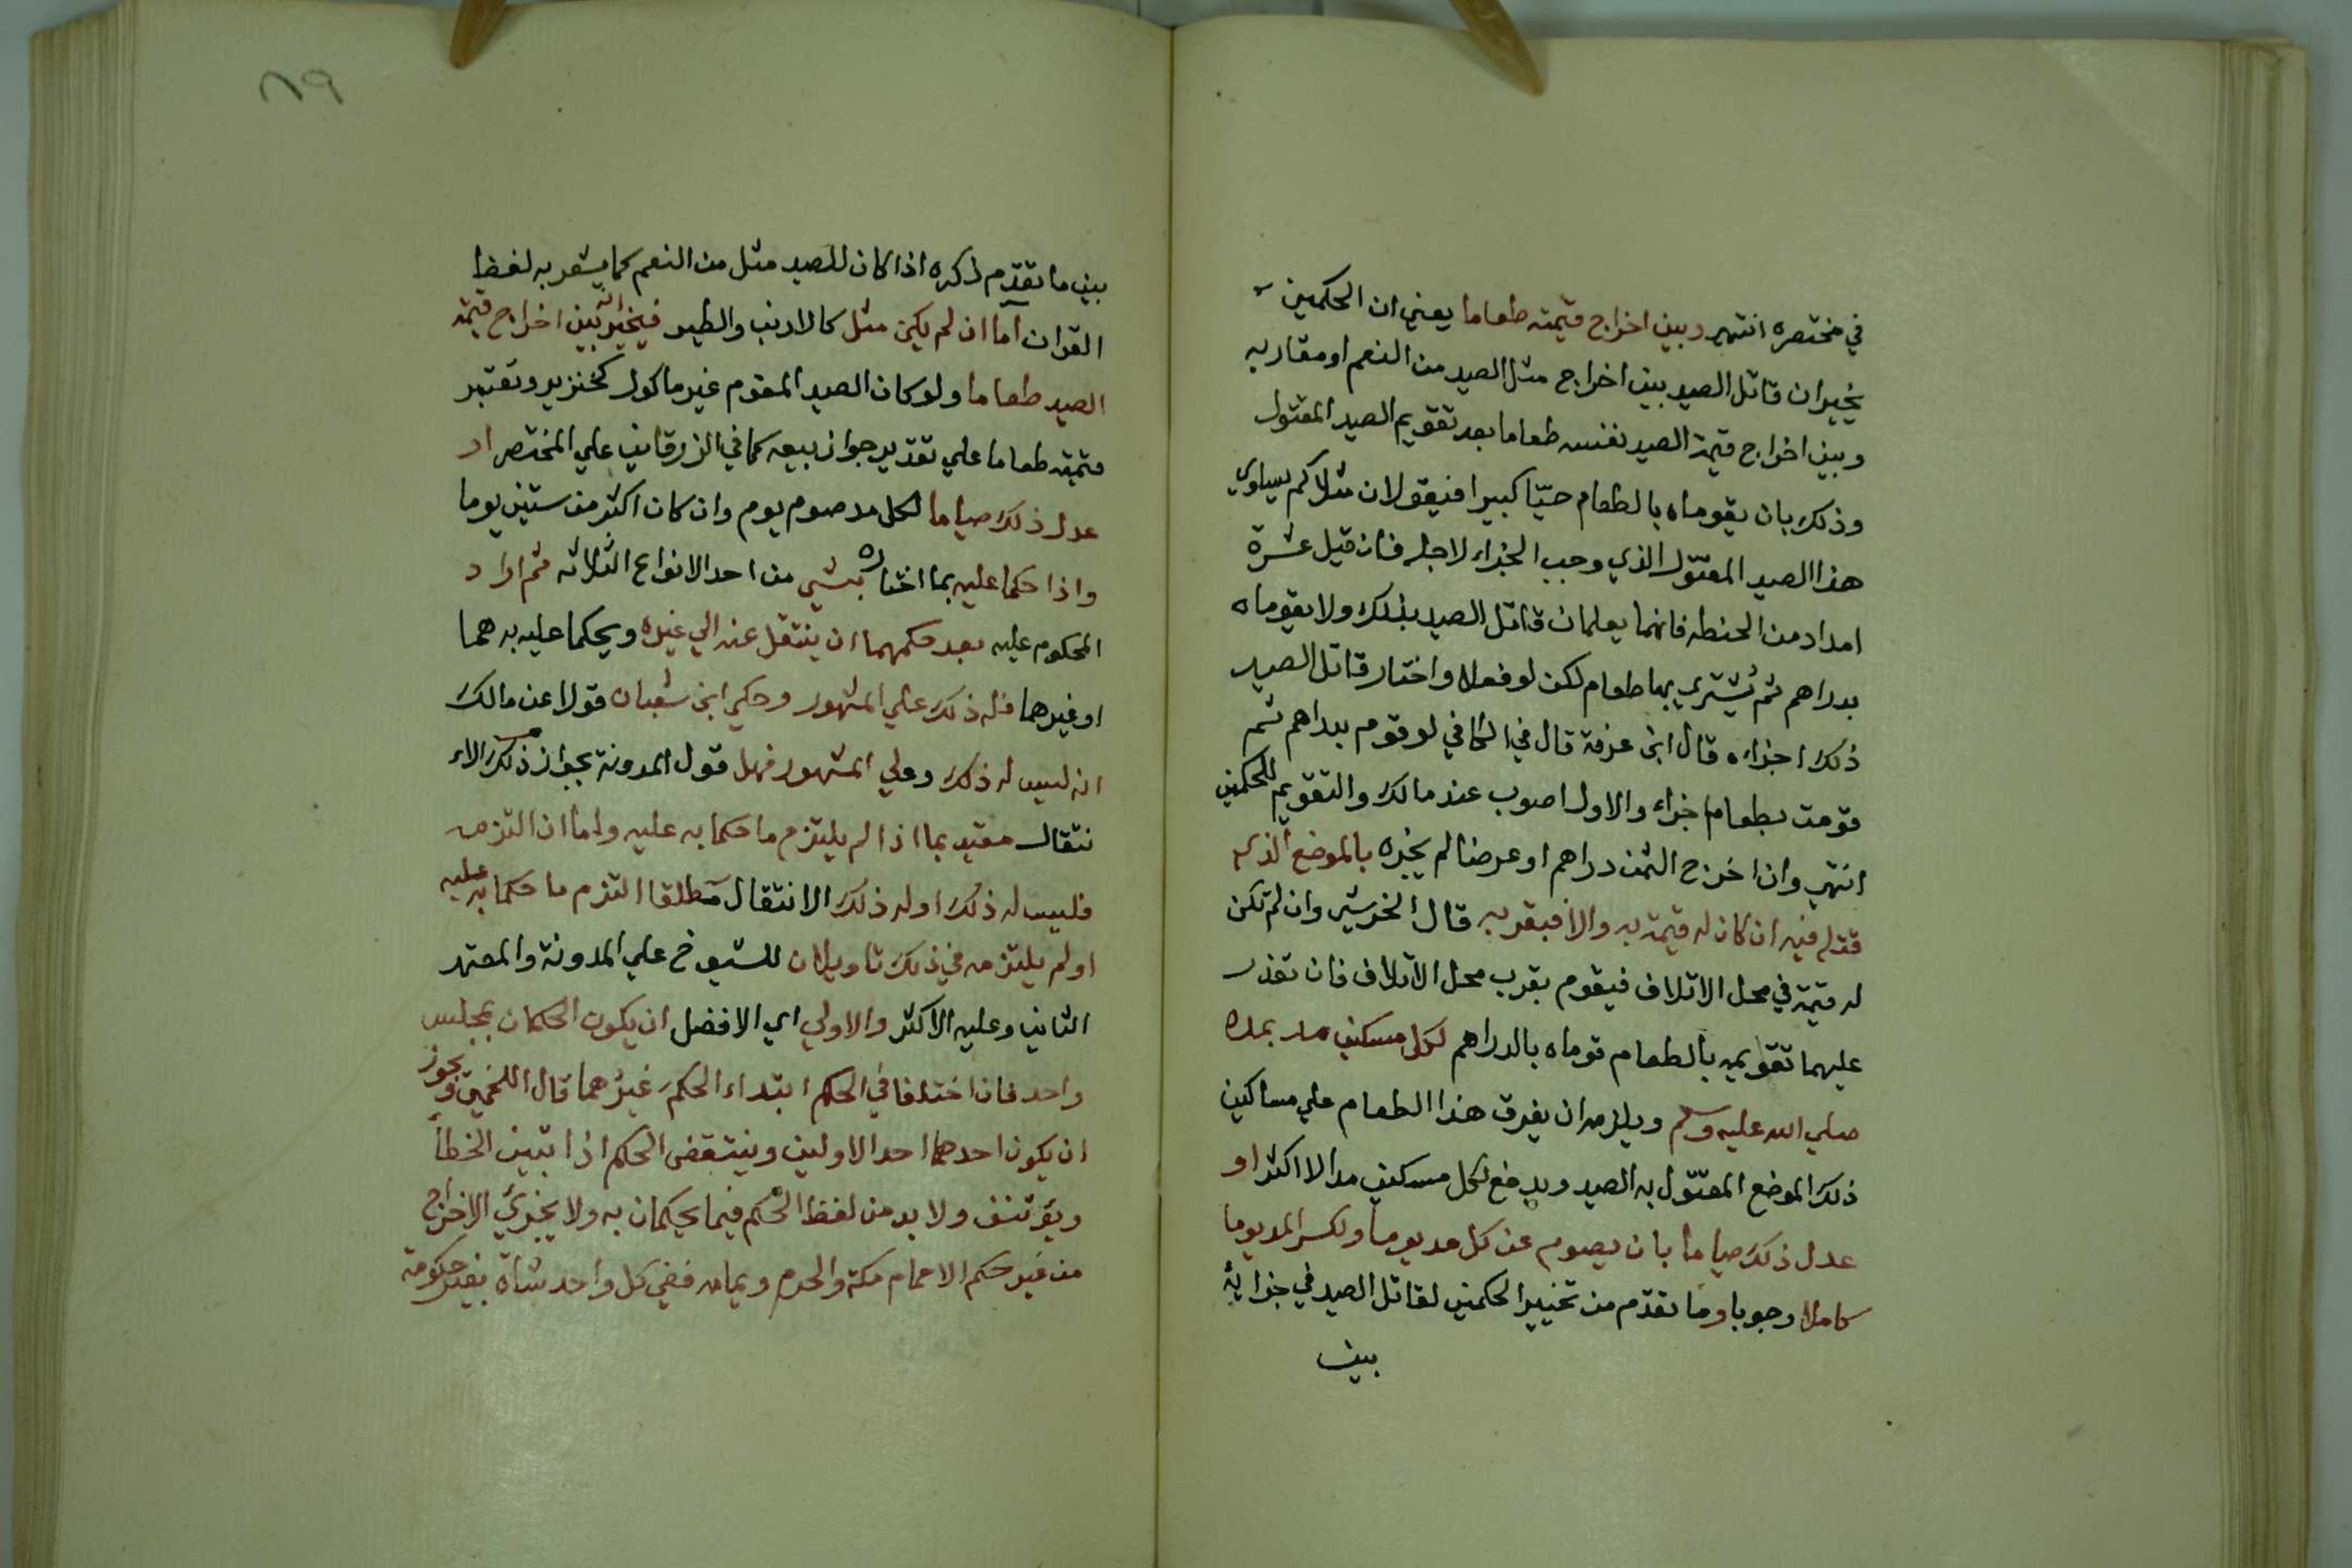 في مختصره انتهى وبين اخراج قيمته طعاما يعني ان الحكمين
يخيران قاتل الصيد بين اخراج مثل الصيد من النعم او مقاربه
وبين اخراج قيمة الصيد نفسه طعاما بعد تقويم الصيد المقتول
وذلك بان يقوماه بالطعام حيّا كبيرا فيقولان مثلا كم يساوي
هذا الصيد المقتول الذي وجب الجزاء لاجله فان قيل عشرة
امداد من الحنطه فانهما يعلمان قاتل الصيد بذلك ولا يقوماه
بدراهم ثم يُشترى بها طعام لكن لو فعلا واختار قاتل الصيد
ذلك اجزاه قال ابن عرفة قال في الكافي لو قوم بدراهم ثم
قومت بطعام اجزاء والاول اصوب عند مالك والتقويم للحكمين
انتهى وان اخرج الثمن دراهم او عرضا لم يجزه بالموضع الذي
قتله فيه ان كان له قيمة به والا فبقربه قال الخرشي وان لم تكن
له قيمة في محل الاتلاف فيقوم بقرب محل الاتلاف فان تعذر
عليهما تقويمه بالطعام قوماه بالدراهم لكل مسكين مد بمده
صلي الله عليه وسلم ويلزمه ان يفرق هذا الطعام علي مساكين
ذلك الموضع المقتول به الصيد ويدفع لكل مسكين مدا لا اكثر او
عدل ذلك صياما بان يصوم عن كل مد يوما ولكسر المد يوما
كاملا وجوبا وما تقدّم من تخيير الحكمين لقاتل الصيد في جزايه
بين
٨٩
بين ما تقدّم ذكره اذا كان للصيد مثل من النعم كما يشعر به لفظ
القران اما ان لم يكن مثل كالارنب والطير فيخير بين اخراج قيمة
الصيد طعاما ولو كان الصيد المقوم غير ماكول كخنزير وتعتبر
قيمته طعاما علي تقدير جواز بيعه كما في الزرقاني علي المختصر او
عدل ذلك صياما لكل مد صوم يوم وان كان اكثر من ستين يوما
واذا حكما عليه بما اختاره بشي من احد الانواع الثلاثه ثم اراد
المحكوم عليه بعد حكمهما ان ينتقل عنه الي غيره ويحكما عليه به هما
او غيرهما فله ذلك علي المشهور وحكي ابن شعبان قولا عن مالك
انه ليس له ذلك وعلي المشهور فهل قول المدونة بجواز ذلك الا
نتقال مقيد بما اذا لم يلتزم ما حكما به عليه واما ان التزمه
فليس له ذلك او له ذلك الانتقال مطلقا التزم ما حكما به عليه
او لم يلتزمه في ذلك تاويلان للشيوخ علي المدونة والمعتمد
الثاني وعليه الاكثر والاولي اي الافضل ان يكون الحكمان بمجلس
واحد فان اختلفا في الحكم ابتداء الحكم غيرُهما قال اللخمي ويجوز
ان يكون احدهما احد الاولين وينتقض الحكم اذا تبين الخطأ
ويؤتنف ولا بد من لفظ الحكم فيما يحكمان به ولا يجزئ الاخراج
من غير حكم الا حمام مكة والحرم ويمامه ففي كل واحد شاة بغير حكومة